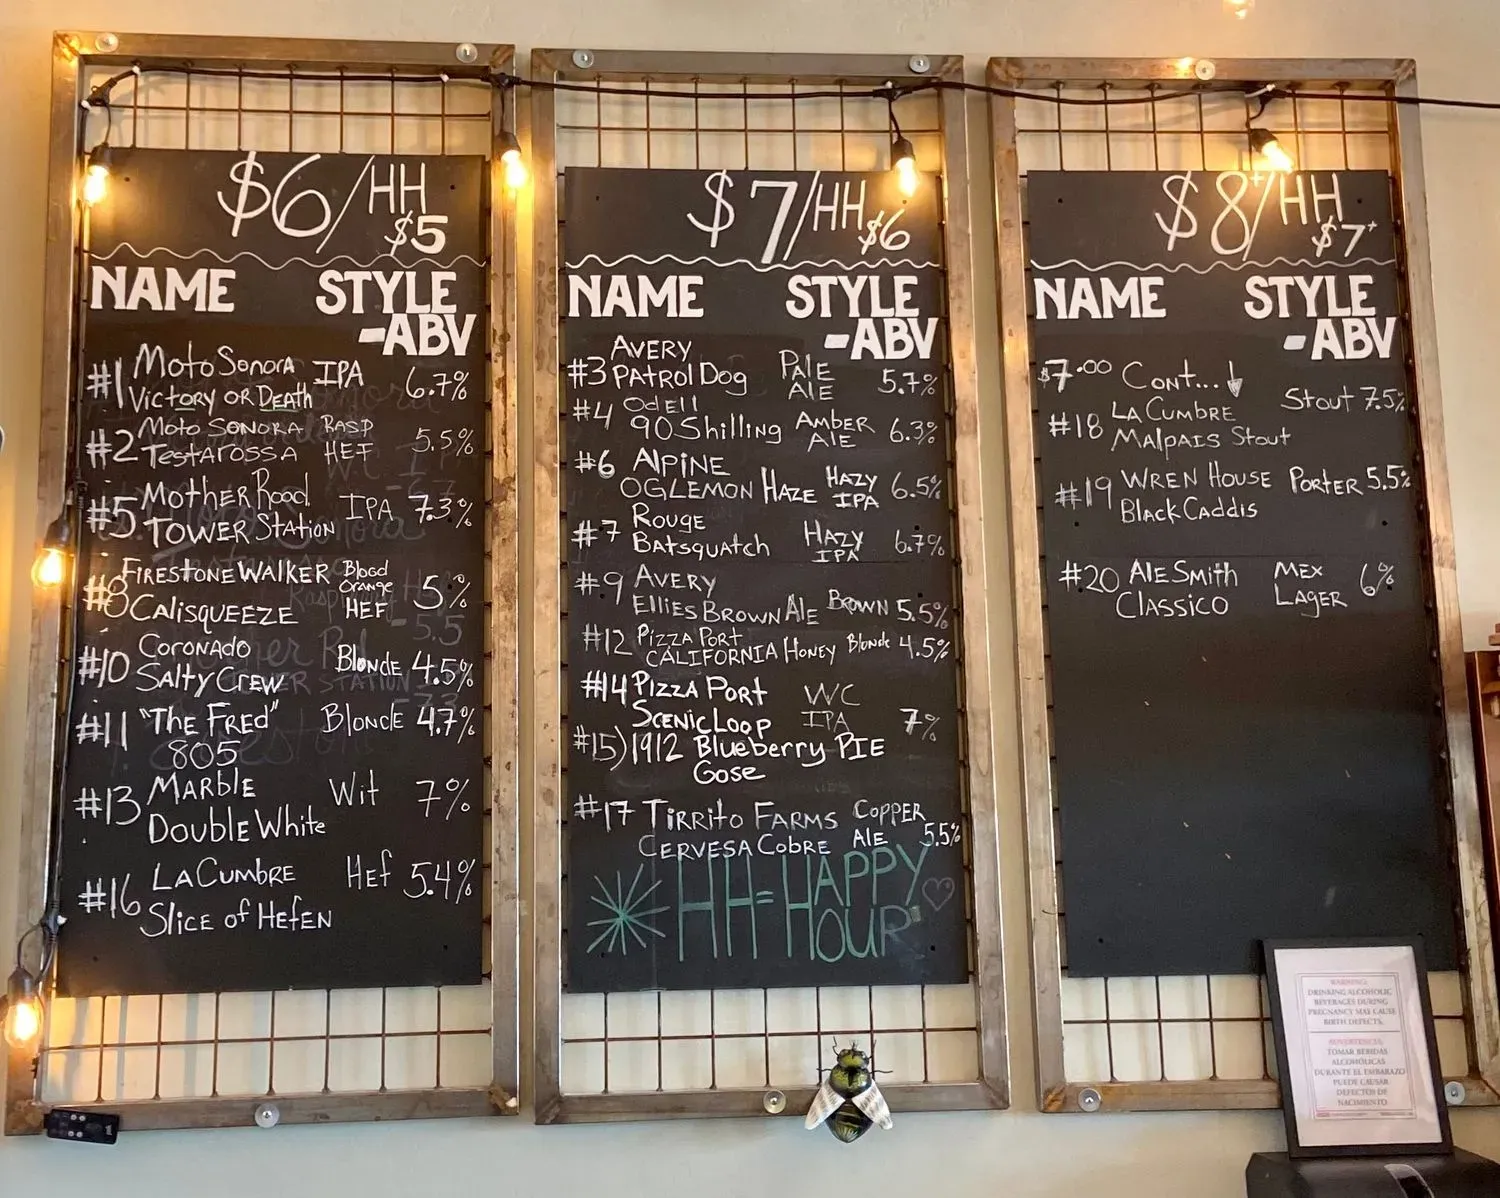 $6/HH $5
NAME STYLE
-ABV
#1 Moto Sonora IPA 6.7%
Victory or Death
#2 Moto Sonora Rasp 5.5%
Testarossa Hef
#5 Mother Road IPA 7.3%
Tower Station
#8 Firestone Walker Blood Orange Hef 5%
Calisqueeze
#10 Coronado Blonde 4.5%
Salty Crew
#11 "The Fred" Blonde 4.7%
805
#13 Marble Wit 7%
Double White
#16 La Cumbre Hef 5.4%
Slice of Hefen
$7/HH $6
NAME STYLE
-ABV
#3 Avery Pale 5.7%
Patrol Dog Ale
#4 Odell Amber 6.3%
90 Shilling Ale
#6 Alpine Hazy 6.5%
OG Lemon Haze IPA
#7 Rouge Hazy 6.7%
Batsquatch IPA
#9 Avery Brown 5.5%
Ellies Brown Ale
#12 Pizza Port Blonde 4.5%
California Honey
#14 Pizza Port WC
Scenic Loop IPA 7%
#15) 1912 Blueberry Pie
Gose
#17 Tirrito Farms Copper
Cervesa Cobre Ale 5.5%
HH = HAPPY
HOUR
$8+/HH $7+
NAME STYLE
-ABV
$7.00 Cont...
#18 La Cumbre Stout 7.5%
Malpais Stout
#19 Wren House Porter 5.5%
Black Caddis
#20 AleSmith Mex 6%
Classico Lager
WARNING:
DRINKING ALCOHOLIC
BEVERAGES DURING
PREGNANCY MAY CAUSE
BIRTH DEFECTS.
ADVERTENCIA:
TOMAR BEBIDAS
ALCOHÓLICAS
DURANTE EL EMBARAZO
PUEDE CAUSAR
DEFECTOS DE
NACIMIENTO